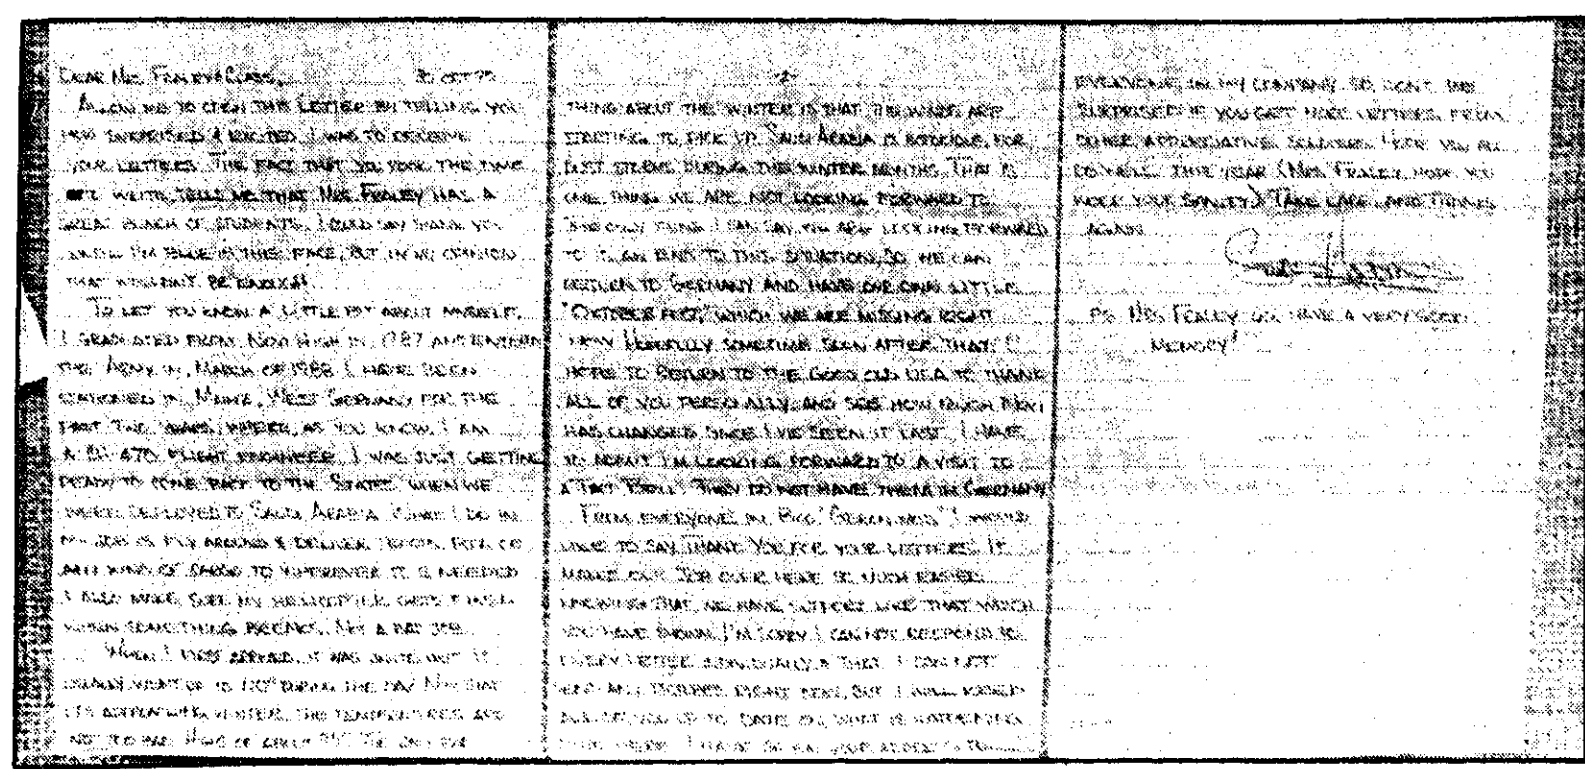 Dear Mrs. Fraley & Class, 30 Oct 90
Allow me to open this letter by telling you
how surprised & excited I was to receive
your letters. The fact that you took the time
and write tells me that Mrs. Fraley has a
great bunch of students. I could say thank you
until I'm blue in the face, but in my opinion
that wouldn't be enough.
To let you know a little bit about myself,
I graduated from Novi High in 1987 and entered
the Army in March of 1988. I have been
stationed in Mainz, West Germany for the
past two years, where, as you know, I am
a CH-47D flight engineer. I was just getting
ready to come back to the States when we
were deployed to Saudi Arabia. What I do in
my job is fly around & deliver troops, or
any kind of cargo to wherever it is needed.
I also make sure my helicopter gets fixed
when something breaks. Not a bad job.
When I first arrived, it was quite hot. It
usually went up to during the day. Now that
it's winter, the temperatures are
not too bad. Kind of The only bad
-2-
thing about the winter is that the winds are
starting to pick up. Saudi Arabia is notorious for
dust storms during the winter months. That is
one thing we are not looking forward to.
The only thing I can say we are looking forward
to is an end to this situation, so we can
return to Germany and have our own little
"Oktober Fest," which we are missing right
now. Hopefully sometime soon after that, I
hope to return to the good old USA to thank
all of you personally, and see how much Novi
has changed since I've seen it last. I have
to admit I'm looking forward to a visit to
a "Taco Bell". They do not have them in Germany.
From everyone in I would
like to say thank you for your letters. It
makes our job over here so much easier
knowing that we have support like that which
you have shown. I'm sorry I can not respond to
every letter & that I can not
send any pictures right now, but I will keep
all of you up to date on what is happening
over here. I have your address to
everyone in my company so don't be
surprised if you get more letters from
other appreciative soldiers. Hope you all
do well this year (Mrs. Fraley, hope you
keep your sanity.) Take care, and thanks
again.
PS. Mrs. Fraley, you have a very good
memory!